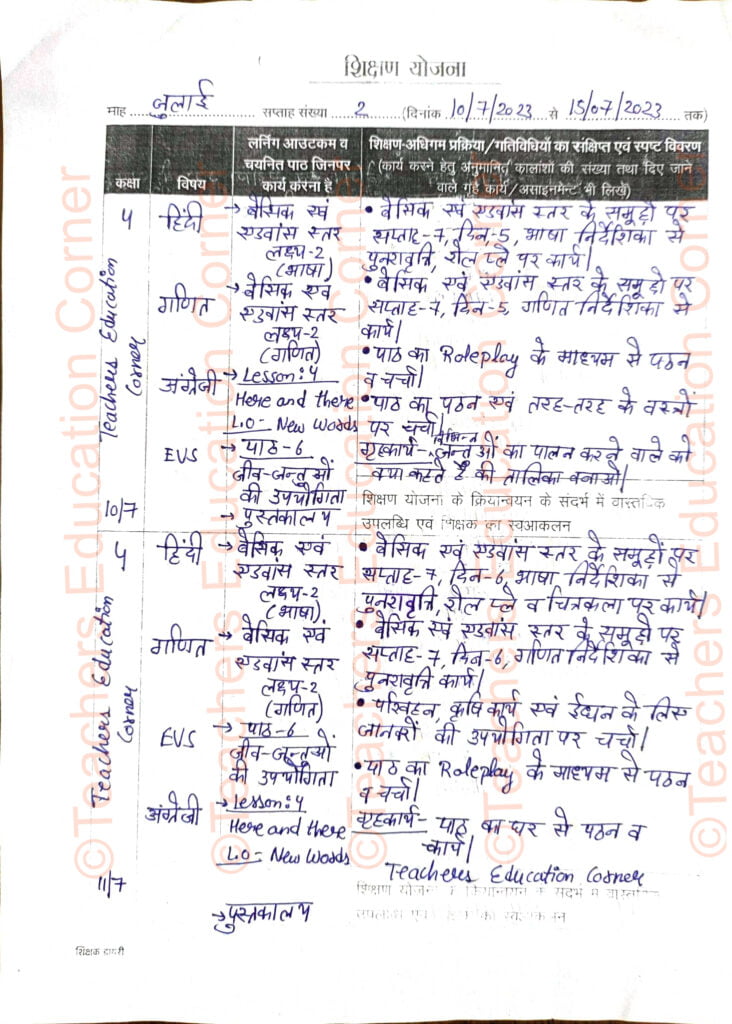 शिक्षण योजना
माह जुलाई सप्ताह संख्या 2 (दिनांक 10/7/2023 से 15/07/2023 तक)
कक्षा
विषय
लर्निंग आउटकम व
चयनित पाठ जिनपर
कार्य करना है
शिक्षण-अधिगम प्रक्रिया/गतिविधियों का संक्षिप्त एवं स्पष्ट विवरण
(कार्य करने हेतु अनुमानित कालांशों की संख्या तथा दिए जाने
वाले गृह कार्य/असाइनमेन्ट भी लिखें)
4
हिंदी
→ बेसिक एवं
एडवांस स्तर
लक्ष्य-2
(भाषा)
• बेसिक एवं एडवांस स्तर के समूहों पर
सप्ताह-7, दिन-5, भाषा निर्देशिका से
पुनरावृति, रोल प्ले पर कार्य।
गणित
→ बेसिक एवं
एडवांस स्तर
लक्ष्य-2
(गणित)
• बेसिक एवं एडवांस स्तर के समूहों पर
सप्ताह-7, दिन-5, गणित निर्देशिका से
कार्य।
अंग्रेजी
→ Lesson:4
Here and there
L.O- New Words
• पाठ का Roleplay के माध्यम से पठन
व चर्चा।
EVS
→ पाठ-6
जीव-जन्तुओं
की उपयोगिता
→ पुस्तकालय
• पाठ का पठन एवं तरह-तरह के वस्त्रों
पर चर्चा।
गृहकार्य- विभिन्न जन्तुओं का पालन करने वाले को
क्या कहते हैं की तालिका बनाओ।
10/7
शिक्षण योजना के क्रियान्वयन के संदर्भ में वास्तविक
उपलब्धि एवं शिक्षक का स्वआकलन
Teachers Education
Corner
4
हिंदी
→ बेसिक एवं
एडवांस स्तर
लक्ष्य-2
(भाषा)
• बेसिक एवं एडवांस स्तर के समूहों पर
सप्ताह-7, दिन-6, भाषा निर्देशिका से
पुनरावृति, रोल प्ले व चित्रकला पर कार्य।
गणित
→ बेसिक एवं
एडवांस स्तर
लक्ष्य-2
(गणित)
• बेसिक एवं एडवांस स्तर के समूहों पर
सप्ताह-7, दिन-6, गणित निर्देशिका से
पुनरावृति कार्य।
EVS
→ पाठ-6
जीव-जन्तुओं
की उपयोगिता
• परिवहन, कृषि कार्य एवं ईंधन के लिए
जानवरों की उपयोगिता पर चर्चा।
अंग्रेजी
→ Lesson:4
Here and there
L.O- New Words
• पाठ का Roleplay के माध्यम से पठन
व चर्चा।
गृहकार्य- पाठ का घर से पठन व
कार्य।
Teachers Education Corner
11/7
→ पुस्तकालय
शिक्षण योजना के क्रियान्वयन के संदर्भ में वास्तविक
उपलब्धि एवं शिक्षक का स्वआकलन
Teachers Education
Corner
शिक्षक डायरी
©Teachers Education Corner
©Teachers Education Corner
©Teachers Education Corner
©Teachers Education Corner
©Teachers Education Corner